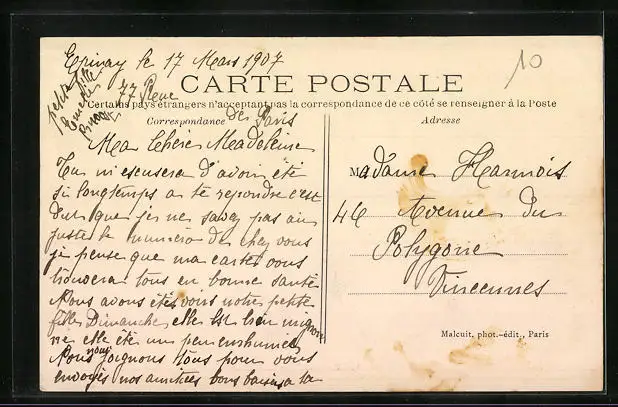 Epinay le 17 Mars 1907
77 Rue
de Paris
10
CARTE POSTALE
Certains pays étrangers n'acceptant pas la correspondance de ce côté se renseigner à la Poste
Correspondance
Adresse
Ma Chére Madeleine
Tu m'escusera d'avoir été
si longtemps a te repondre c'est
du que je ne savez pas au
juste le numéro de chez vous
je pense que ma carte vous
trouvera tous en bonne santé
Nous avons étés vous notre petite
fille Dimanche, elle est bien mignonne
elle été un peu enrhumée
Nous nous joignons tous pour vous
envoyés nos amitiées bons baisers a ta
petite
Madame Harmois
44 Avenue du
Polygone
Vincennes
Malcuit, phot.-édit., Paris